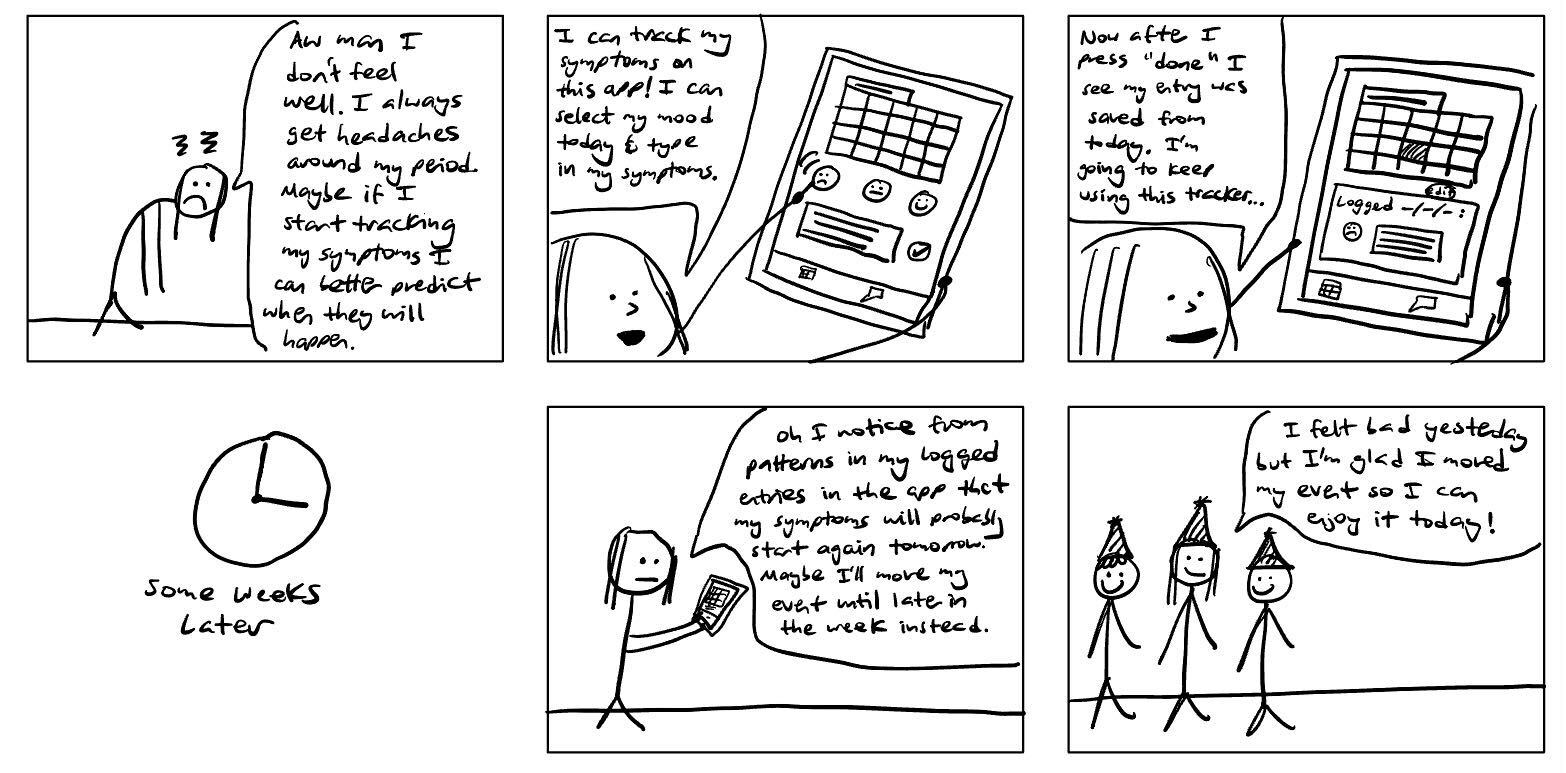 Aw man I
don't feel
well. I always
get headaches
around my period.
Maybe if I
start tracking
my symptoms I
can better predict
when they will
happen.
I can track my
symptoms on
this app! I can
select my mood
today & type
in my symptoms.
Now after I
press "done" I
see my entry was
saved from
today. I'm
going to keep
using this tracker...
edit
Logged -/-/- :
some weeks
later
oh I notice from
patterns in my logged
entries in the app that
my symptoms will probably
start again tomorrow.
Maybe I'll move my
event until later in
the week instead.
I felt bad yesterday
but I'm glad I moved
my event so I can
enjoy it today!